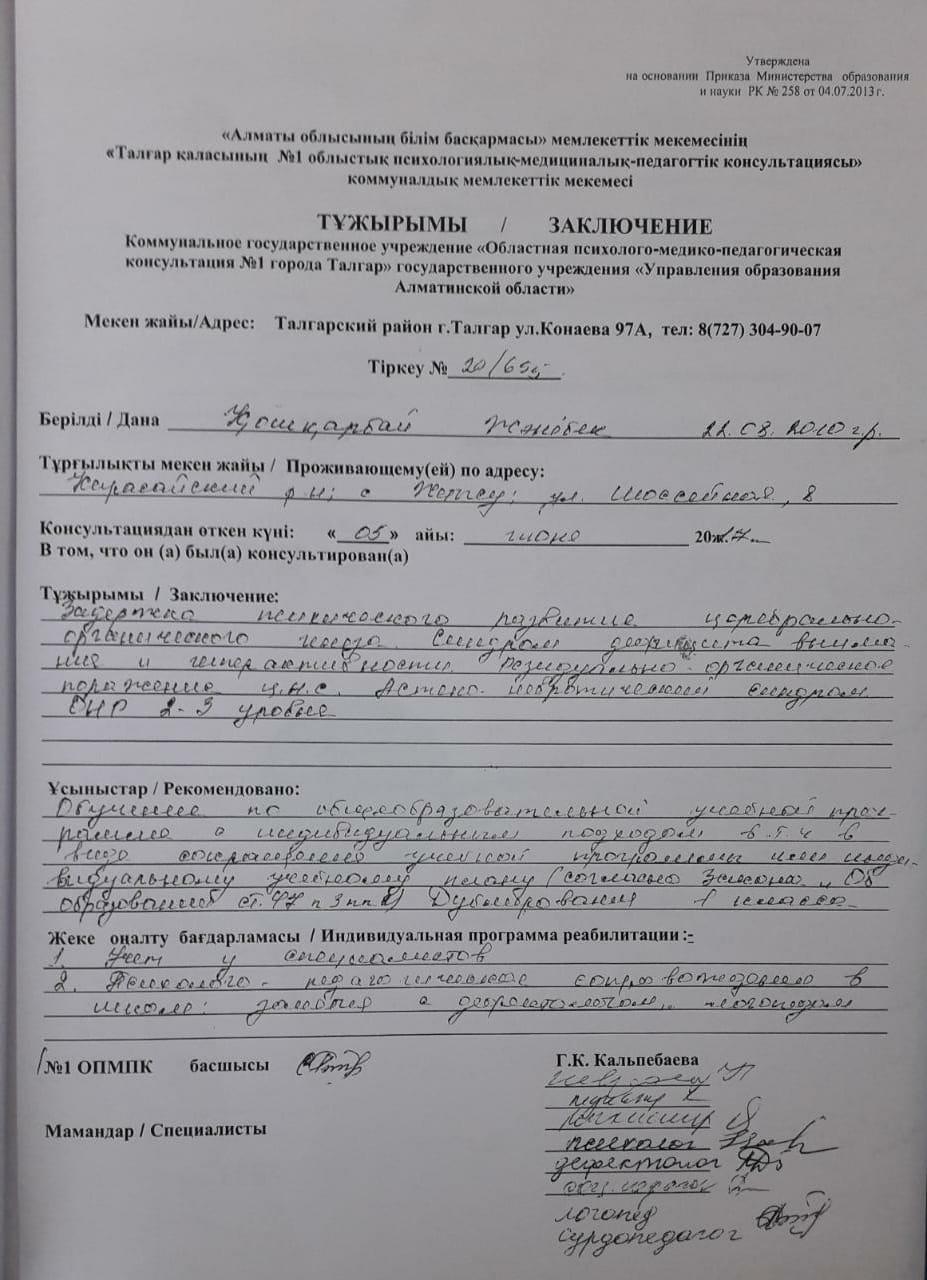 Утверждена
на основании Приказа Министерства образования
и науки РК № 258 от 04.07.2013 г.
«Алматы облысының білім басқармасы» мемлекеттік мекемесінің
«Талғар қаласының №1 облыстық психологиялық-медициналық-педагогтік консультациясы»
коммуналдық мемлекеттік мекемесі
ТҰЖЫРЫМЫ / ЗАКЛЮЧЕНИЕ
Коммунальное государственное учреждение «Областная психолого-медико-педагогическая
консультация №1 города Талгар» государственного учреждения «Управления образования
Алматинской области»
Мекен жайы/Адрес: Талгарский район г.Талгар ул.Конаева 97А, тел: 8(727) 304-90-07
Тіркеу № 20/65
Берілді / Дана Қошқарбай Жәнібек 22.03.2010 г.р.
Тұрғылықты мекен жайы / Проживающему(ей) по адресу:
Карасайский р-н; с ул. Шоссейная, 8
Консультациядан өткен күні: « 05 » айы: июня 2017
В том, что он (а) был(а) консультирован(а)
Тұжырымы / Заключение:
Задержка психического развития церебрально-
органического генеза. Синдром дефицита внима-
ния и гиперактивности. Резидуально-органическое
поражение ц.н.с. Астено-невротический синдром
ОНР 2-3 уровня
Ұсыныстар / Рекомендовано:
Обучение по общеобразовательной учебной прог-
рамме с индивидуальным подходом в т.ч в
виде сокращения учебной программы или инди-
видуальному учебному плану (согласно Закона „Об
образовании" ст.47 п 3 пп 2) Дублирование 1 класса
Жеке оңалту бағдарламасы / Индивидуальная программа реабилитации:-
1. Учет у специалистов
2. Психолого-педагогическое сопровождение в
школе: занятия с дефектологом, логопедом
№1 ОПМПК басшысы
Г.К. Кальпебаева
Мамандар / Специалисты
психиатр
психолог
дефектолог
соц. педагог
логопед
сурдопедагог